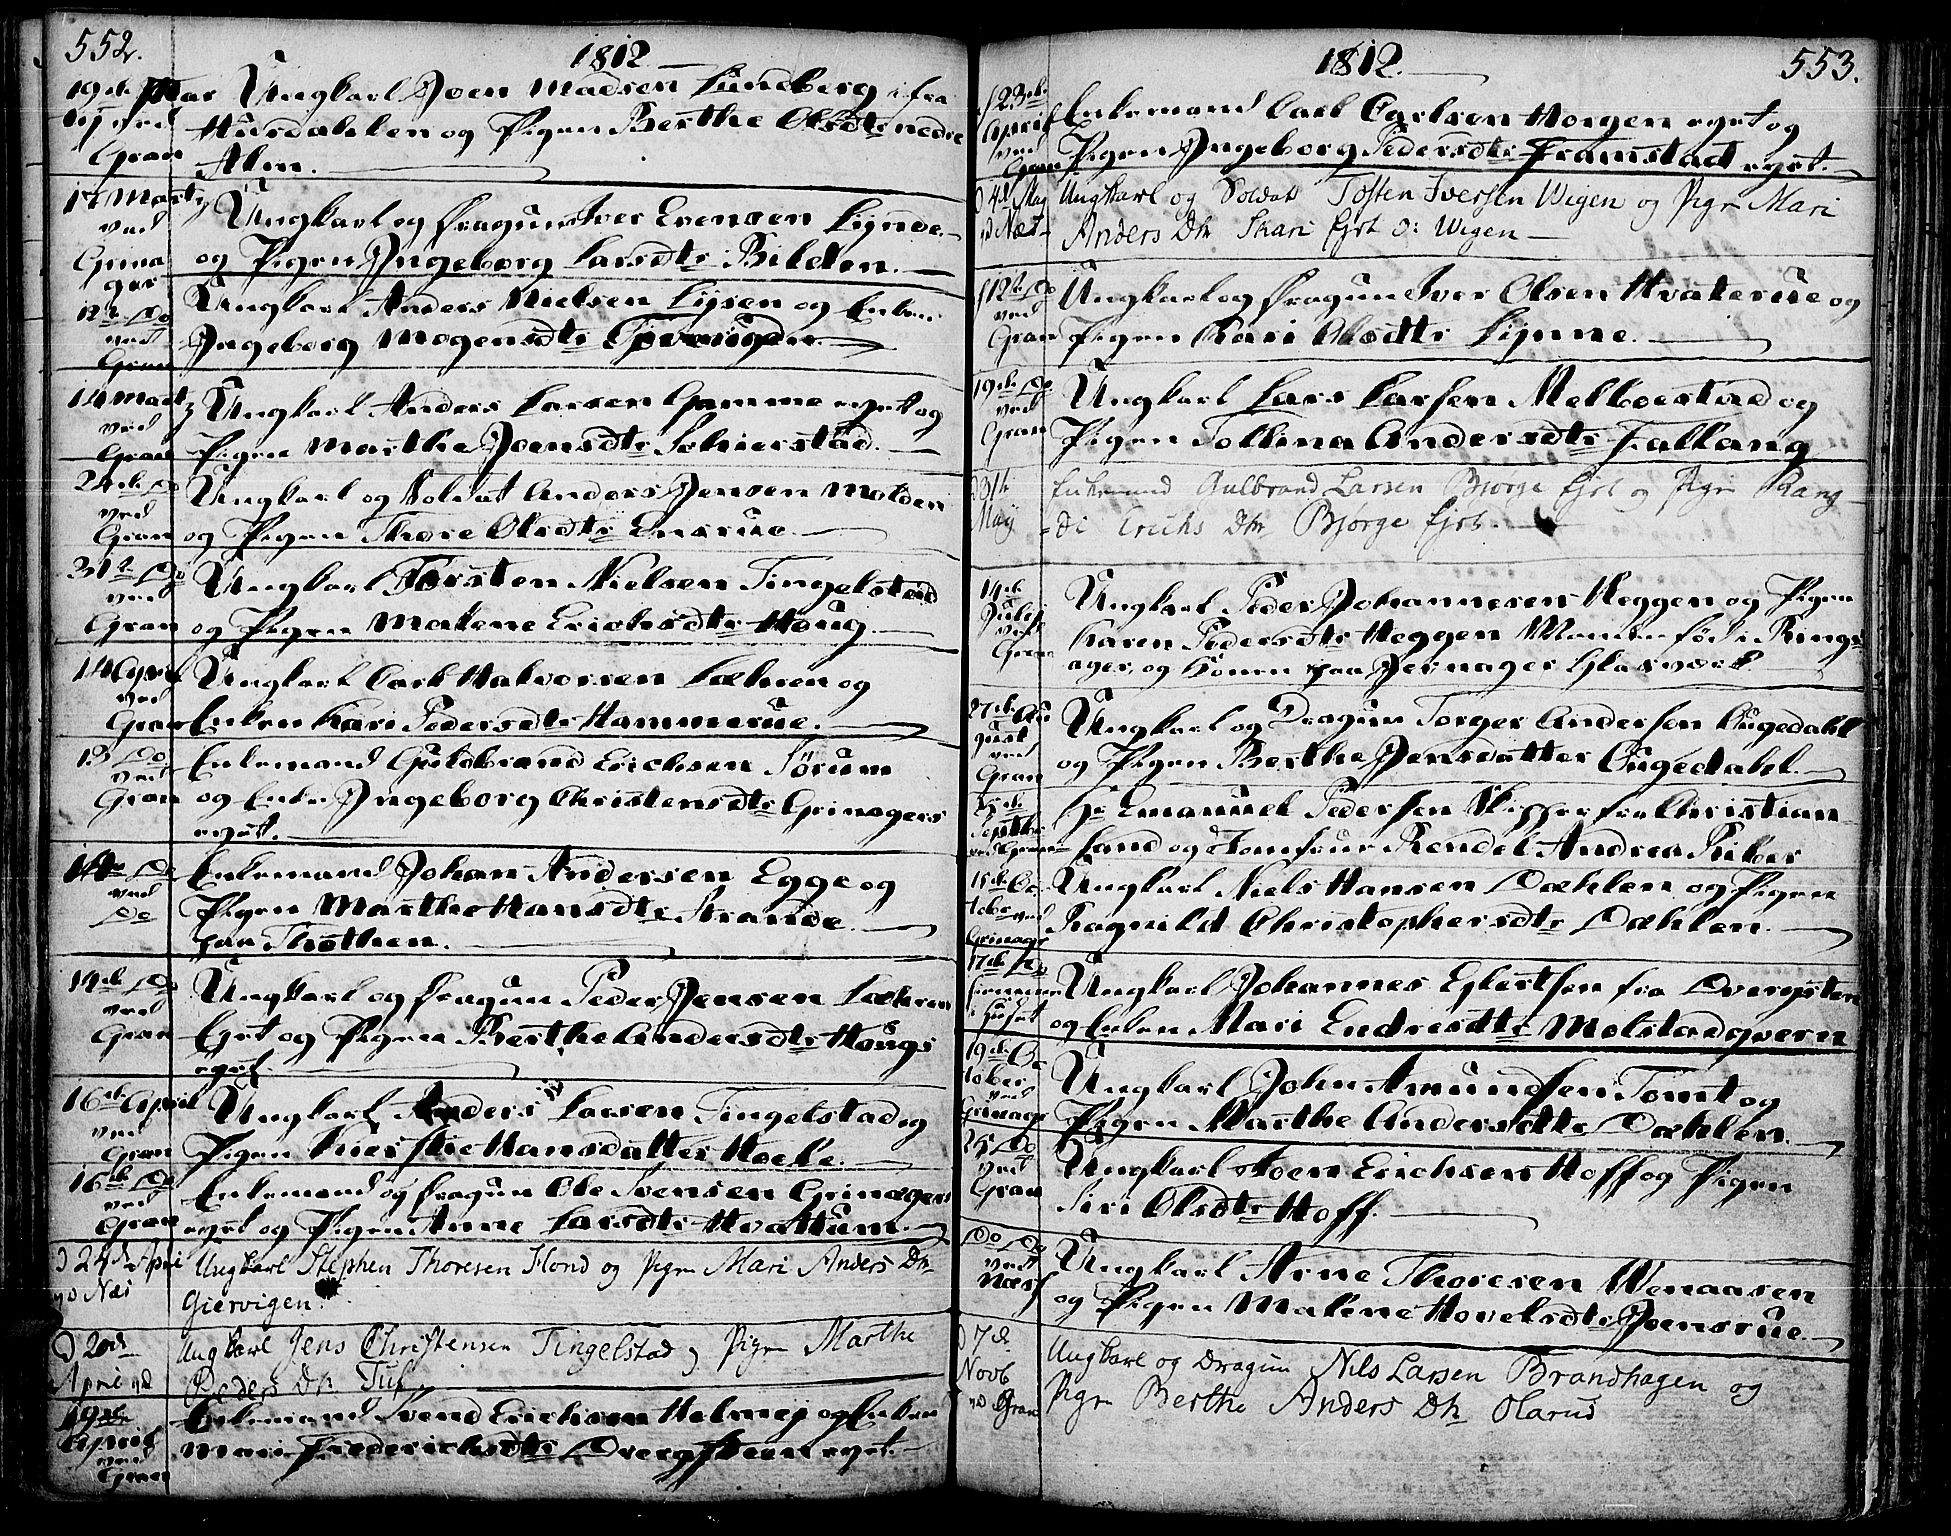 552.
1812
19de Mar
tij ved
Gran
Ungkarl Joen Madsen Lundberg i fra
Husdahlen og Pigen Berthe Olsdtr nedre
Alm.
17 Marty
ved
Grina
ger
Ungkarl og Dragun Iver Evensen Lynne
og Pigen Ingeborg Larsdtr Bilden.
12te Do
ved
Gran
Ungkarl Anders Nielsen Lysen og Enken
Ingeborg Mogensdtr
14 Marty
ved
Gran
Ungkarl Anders Larsen Gamme eyet og
Pigen Marthe Joensdtr Schierstad.
24de Do
ved
Gran
Ungkarl og Soldat Anders Jensen Molden
og Pigen Thore Olsdtr Ensrue.
31te Do
ved
Gran
Ungkarl Torsten Nielsen Tingelstad
og Pigen Malene Erichsdtr Houg.
14 April
ved
Gran
Ungkarl Carl Halvorsen Læhren og
Enken Kari Pedersdtr Hammerue.
13 Do
ved
Gran
Enkemand Guldbrand Erichsen Sørum
og Enken Ingeborg Christensdtr Grinagers
eyet.
14de Do
ved
Do
Enkemand Johan Andersen Egge og
Pigen Marthe Hansdtr Strande
paa Thothen.
14de Do
ved
Gran
Ungkarl og Dragun Peder Jensen Læhren
Eyet og Pigen Berthe Andersdtr Hougs
eyet.
16de April
ved
Gran
Ungkarl Anders Larsen Tingelstad og
Pigen Kierstie Hansdatter Hoele.
16de Do
ved
Gran
Enkemand og Dragun Ole Svensen Grinagers
eyet og Pigen Anne Larsdtr Hvattum.
D 24de Apri
vd Næs
Ungkarl Stephen Thoresen Hond og Pign Mari Anders Dtr
Giervigen.
D 20de
April vd
Ungkarl Jens Christensen Tingelstad og Pign Marthe
Peders Dtr Tuf.
19de
April
ved
Gran
Enkemand Svend Erichsen Helmej og Enken
Mari Frederichsdtr Dvergsteen eyet.
1812.
553.
23de
April
ved
Gran
Enkemand Carl Carlsen Horgen eyet og
Pigen Ingeborg Pedersdtr Framstad eyet.
D 4de May
vd Næs
Ungkarl og Soldat Tosten Iversen Wigen og Pign Mari
Anders Dtr Skari Ejet o: Wigen
12te Do
ved
Gran
Ungkarl og Dragun Iver Olsen Hvalerue og
Pigen Kari Olsdtr Lynne.
19de Do
ved
Gran
Ungkarl Lars Larsen Melboestad og
Pigen Tollina Andersdtr Fallang
D 31te
Maij
Enkemand Gulbrand Larsen Bjørge Ejet og Pign Rang
di Erichs Dtr Bjørge Ejet.
14de
Julij
ved
Gran
Ungkarl Peder Johannesen Heggen og Pigen
Karen Pedersdtr Heggen Manden fød i Rings
ager, og Konen paa Jevnager Glasværk
27de Au
gust
ved
Gran
Ungkarl og Dragun Torger Andersen Augedahl
og Pigen Berthe Jensdatter Augedahl.
25de
Septbr
ved Gran
Hr Emanuel Pedersen Skipper fra Christian
sand og Jomfrue Rendel Andrea Riber
15de Oc
tober ved
Grinager
Ungkarl Niels Hansen Dæhlen og Pigen
Ragnild Christophersdtr Dæhlen.
17de Do
hiemme
i Huset
Ungkarl Johannes Eglertsen fra Dvergsten
og Enken Mari Endresdtr Molstadqvern
19de Oc
tober
ved
Grinager
Ungkarl John Amundsen Tomt og
Pigen Marthe Andersdtr Dæhlen.
25 Do
ved
Gran
Ungkarl Joen Erichsen Hoff og Pigen
Siri Olsdtr Hoff.
Do Do
ved
Næss
Ungkarl Arne Thoresen Wenaasen
og Pigen Malene Hovelsdtr Joensrue.
D 7de
Novb
vd Gran
Ungkarl og Dragun Nils Larsen Brandhagen og
Pign Berthe Anders Dtr Olarud